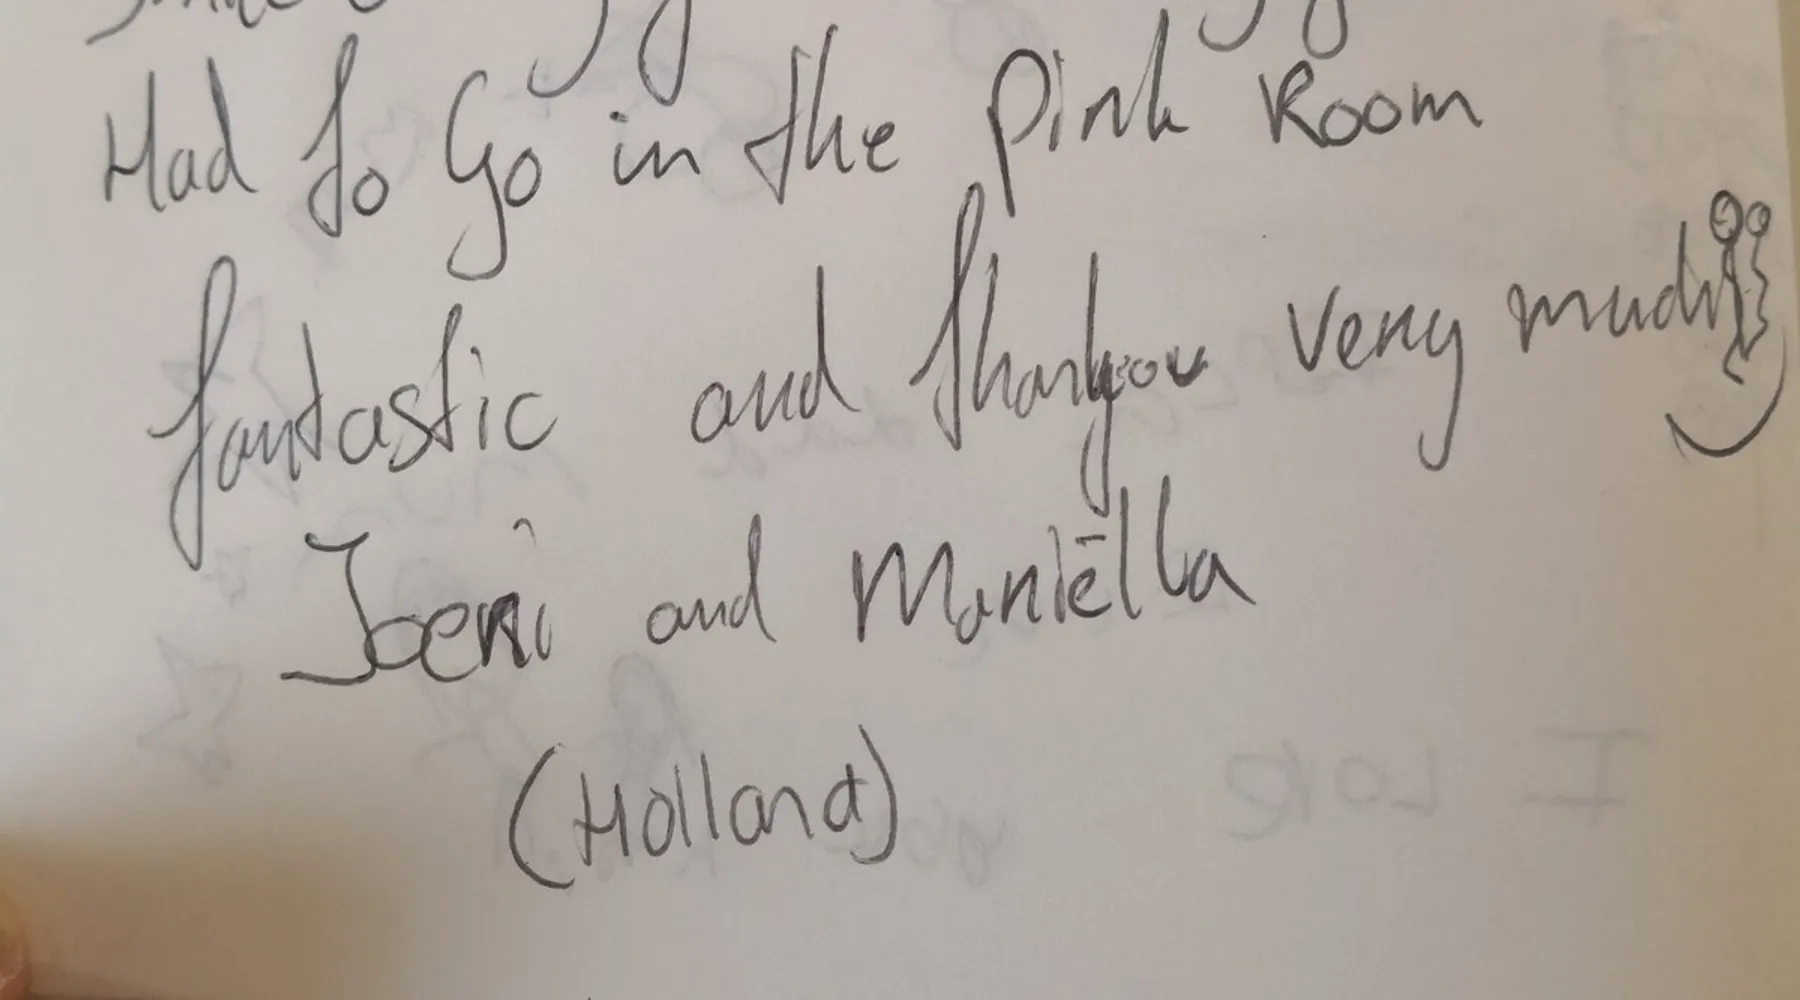 Had to Go in the Pink Room
fantastic and thankyou very much
and Mariëlla
(Holland)
I Love